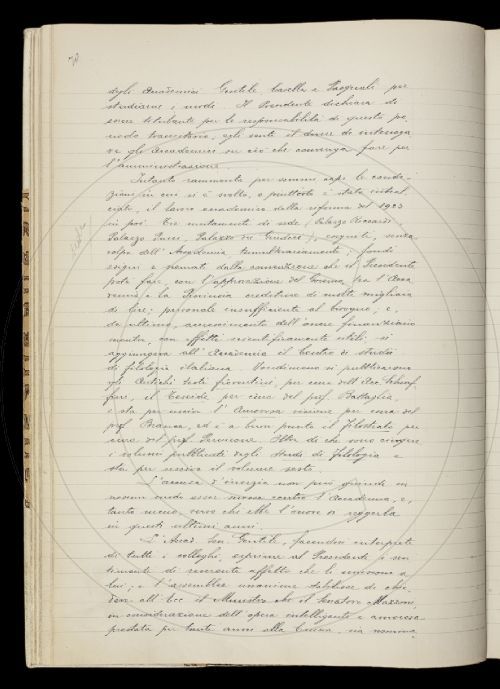 70
degli Accademici Gentile, Casella e Pasquali per
studiarne i modi. Il Presidente dichiara di
essere titubante per le responsabilità di questo pe,
riodo transitorio, egli sente il dovere di interroga,
re gli Accademici su ciò che convenga fare per
l'amministrazione.
Intanto rammenta per sommi capi le condi,
zioni in cui si è svolto, o piuttosto è stato intral
ciato, il lavoro accademico dalla riforma del 1923
in poi. Tre mutamenti di sede (Palazzo Riccardi,
Palazzo Pucci, Palazzo dei Giudici), eseguiti, senza
colpa dell'Accademia, tumultuariamente; fondi
esigui e gravati dalla convenzione che il Presidente
poté fare, con l'approvazione del Governo, fra l'Acca
demia e la Provincia creditrice di molte migliaia
di lire; personale insufficiente al bisogno; e,
da ultimo, accrescimento dell'onere finanziario
mentre, con effetti scientificamente utili, si
aggiungeva all'Accademia il Centro di studi
di filologia italiana. Nondimeno si pubblicarono
gli Antichi testi fiorentini, per cura dell'Acc. Schiaf
fini, il Teseida per cura del prof. Battaglia,
e sta per uscire l'Amorosa visione per cura del
prof. Branca, ed è a buon punto il Filostrato per
cura del prof. Pernicone. Oltre di che sono cinque
i volumi pubblicati degli Studi di filologia e
sta per uscire il volume sesto.
L'accusa d'inerzia non può quindi in
nessun modo esser mossa contro l'Accademia, e,
tanto meno, verso chi ebbe l'onore di reggerla
in questi ultimi anni.
L'Acc. Sen. Gentile, facendosi interprete
di tutti i colleghi, esprime al Presidente i sen
timenti di reverente affetto che li uniscono a
lui; e l'assemblea unanime delibera di chie,
dere all'Ecc. il Ministro che il Senatore Mazzoni,
in considerazione dell'opera intelligente e amorosa
prestata per tanti anni alla Crusca, sia nomina,